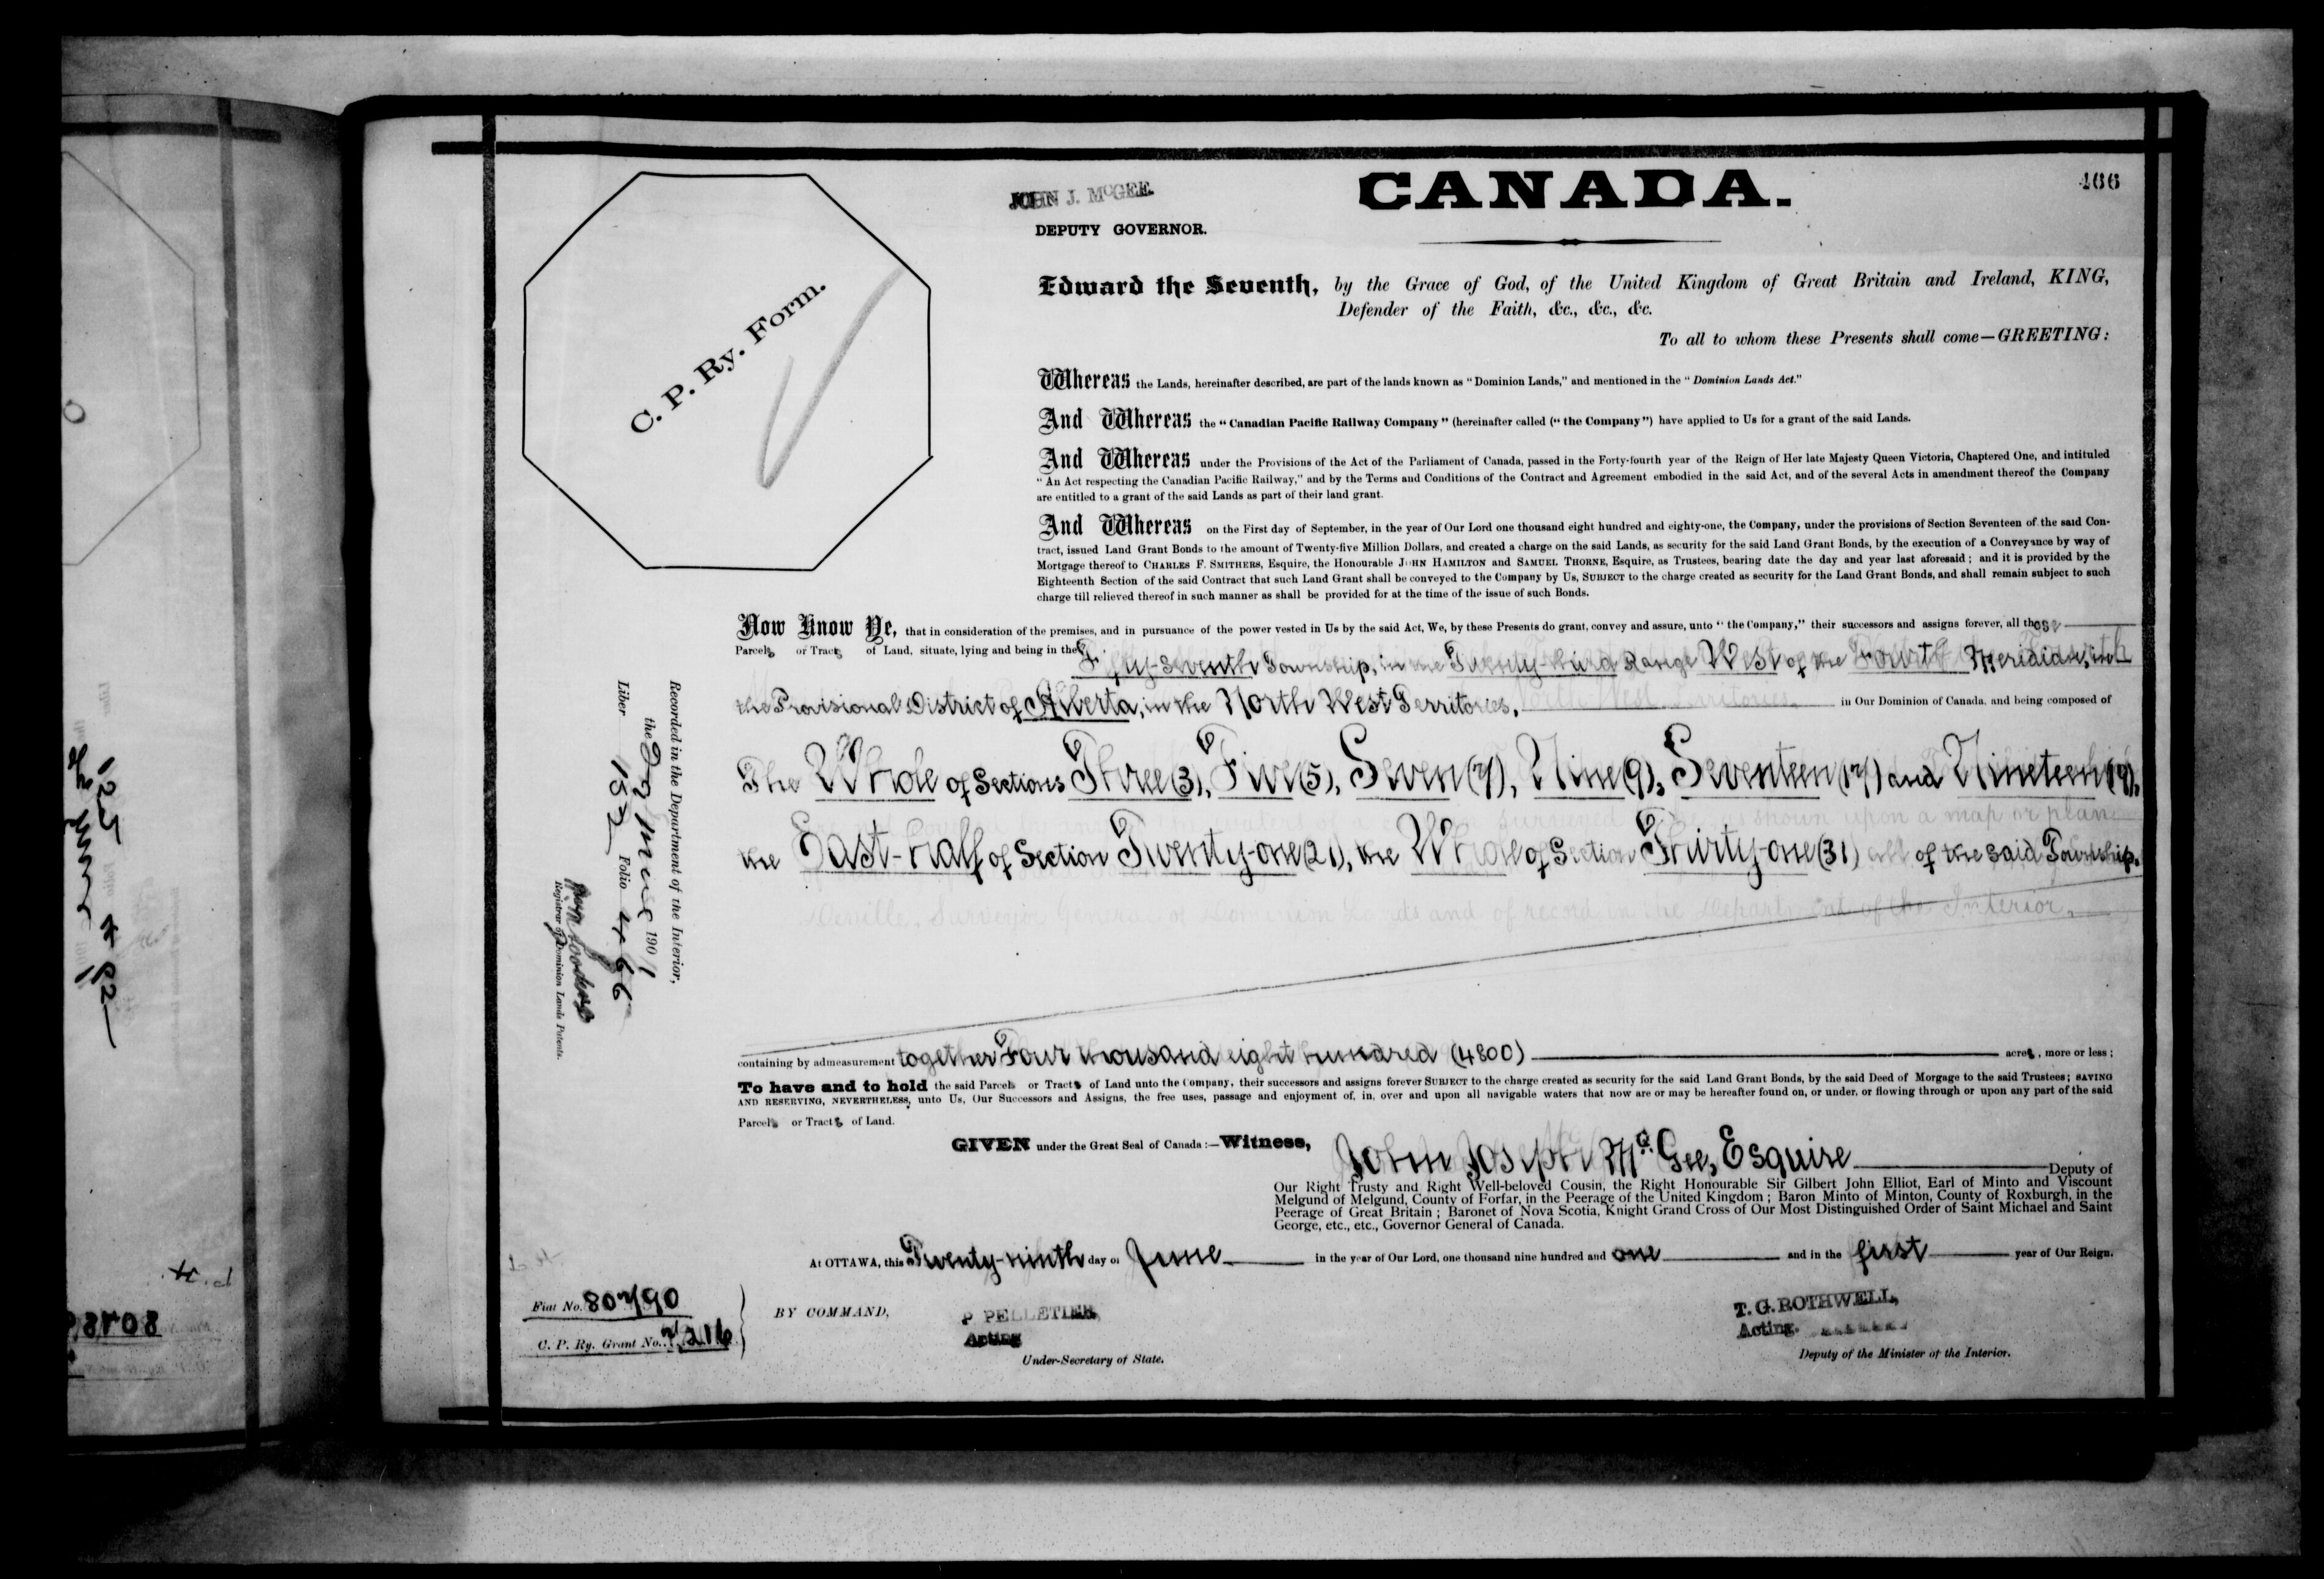 466
JOHN J. McGEE.
DEPUTY GOVERNOR.
CANADA.
C. P. Ry. Form.
Edward the Seventh, by the Grace of God, of the United Kingdom of Great Britain and Ireland, KING,
Defender of the Faith, &c., &c., &c.
To all to whom these Presents shall come—GREETING:
Whereas the Lands, hereinafter described, are part of the lands known as "Dominion Lands," and mentioned in the "Dominion Lands Act."
And Whereas the "Canadian Pacific Railway Company" (hereinafter called ("the Company") have applied to Us for a grant of the said Lands.
And Whereas under the Provisions of the Act of the Parliament of Canada, passed in the Forty-fourth year of the Reign of Her late Majesty Queen Victoria, Chaptered One, and intituled
"An Act respecting the Canadian Pacific Railway," and by the Terms and Conditions of the Contract and Agreement embodied in the said Act, and of the several Acts in amendment thereof the Company
are entitled to a grant of the said Lands as part of their land grant.
And Whereas on the First day of September, in the year of Our Lord one thousand eight hundred and eighty-one, the Company, under the provisions of Section Seventeen of the said Con-
tract, issued Land Grant Bonds to the amount of Twenty-five Million Dollars, and created a charge on the said Lands, as security for the said Land Grant Bonds, by the execution of a Conveyance by way of
Mortgage thereof to CHARLES F. SMITHERS, Esquire, the Honourable JOHN HAMILTON and SAMUEL THORNE, Esquire, as Trustees, bearing date the day and year last aforesaid; and it is provided by the
Eighteenth Section of the said Contract that such Land Grant shall be conveyed to the Company by Us, SUBJECT to the charge created as security for the Land Grant Bonds, and shall remain subject to such
charge till relieved thereof in such manner as shall be provided for at the time of the issue of such Bonds.
Now Know Ye, that in consideration of the premises, and in pursuance of the power vested in Us by the said Act, We, by these Presents do grant, convey and assure, unto "the Company," their successors and assigns forever, all those
Parcels or Tracts of Land, situate, lying and being in the -Seventh Township, in the Twenty-third Range West of the Fourth Meridian, in
the Provisional District of Alberta, in the North West Territories, in Our Dominion of Canada, and being composed of
The Whole of Sections Three (3), Five (5), Seven (7), Nine (9), Seventeen (17) and Nineteen (19),
the East-half of Section Twenty-one (21), the Whole of Section Thirty-one (31) all of the said Township.
containing by admeasurement together Four thousand eight hundred (4800) acres, more or less;
To have and to hold the said Parcels or Tracts of Land unto the Company, their successors and assigns forever SUBJECT to the charge created as security for the said Land Grant Bonds, by the said Deed of Morgage to the said Trustees; SAVING
AND RESERVING, NEVERTHELESS, unto Us, Our Successors and Assigns, the free uses, passage and enjoyment of, in, over and upon all navigable waters that now are or may be hereafter found on, or under, or flowing through or upon any part of the said
Parcels or Tracts of Land.
GIVEN under the Great Seal of Canada:—Witness, John Joseph McGee, Esquire Deputy of
Our Right Trusty and Right Well-beloved Cousin, the Right Honourable Sir Gilbert John Elliot, Earl of Minto and Viscount
Melgund of Melgund, County of Forfar, in the Peerage of the United Kingdom; Baron Minto of Minton, County of Roxburgh, in the
Peerage of Great Britain; Baronet of Nova Scotia, Knight Grand Cross of Our Most Distinguished Order of Saint Michael and Saint
George, etc., etc., Governor General of Canada.
At OTTAWA, this Twenty-ninth day of June in the year of Our Lord, one thousand nine hundred and one and in the first year of Our Reign.
BY COMMAND,
P PELLETIER,
Acting
Under-Secretary of State.
T. G. ROTHWELL,
Acting.
Deputy of the Minister of the Interior.
Fiat No. 80790
C. P. Ry. Grant No. 7216
Recorded in the Department of the Interior,
the 29 June 1901
Liber 152 Folio 466
Registrar of Dominion Lands Patents.